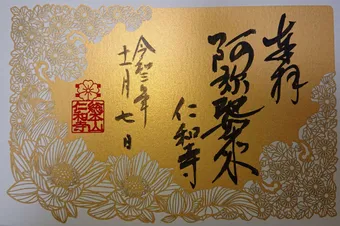 奉拝
阿弥陀如来
仁和寺
令和三年
十一月七日
仁和寺